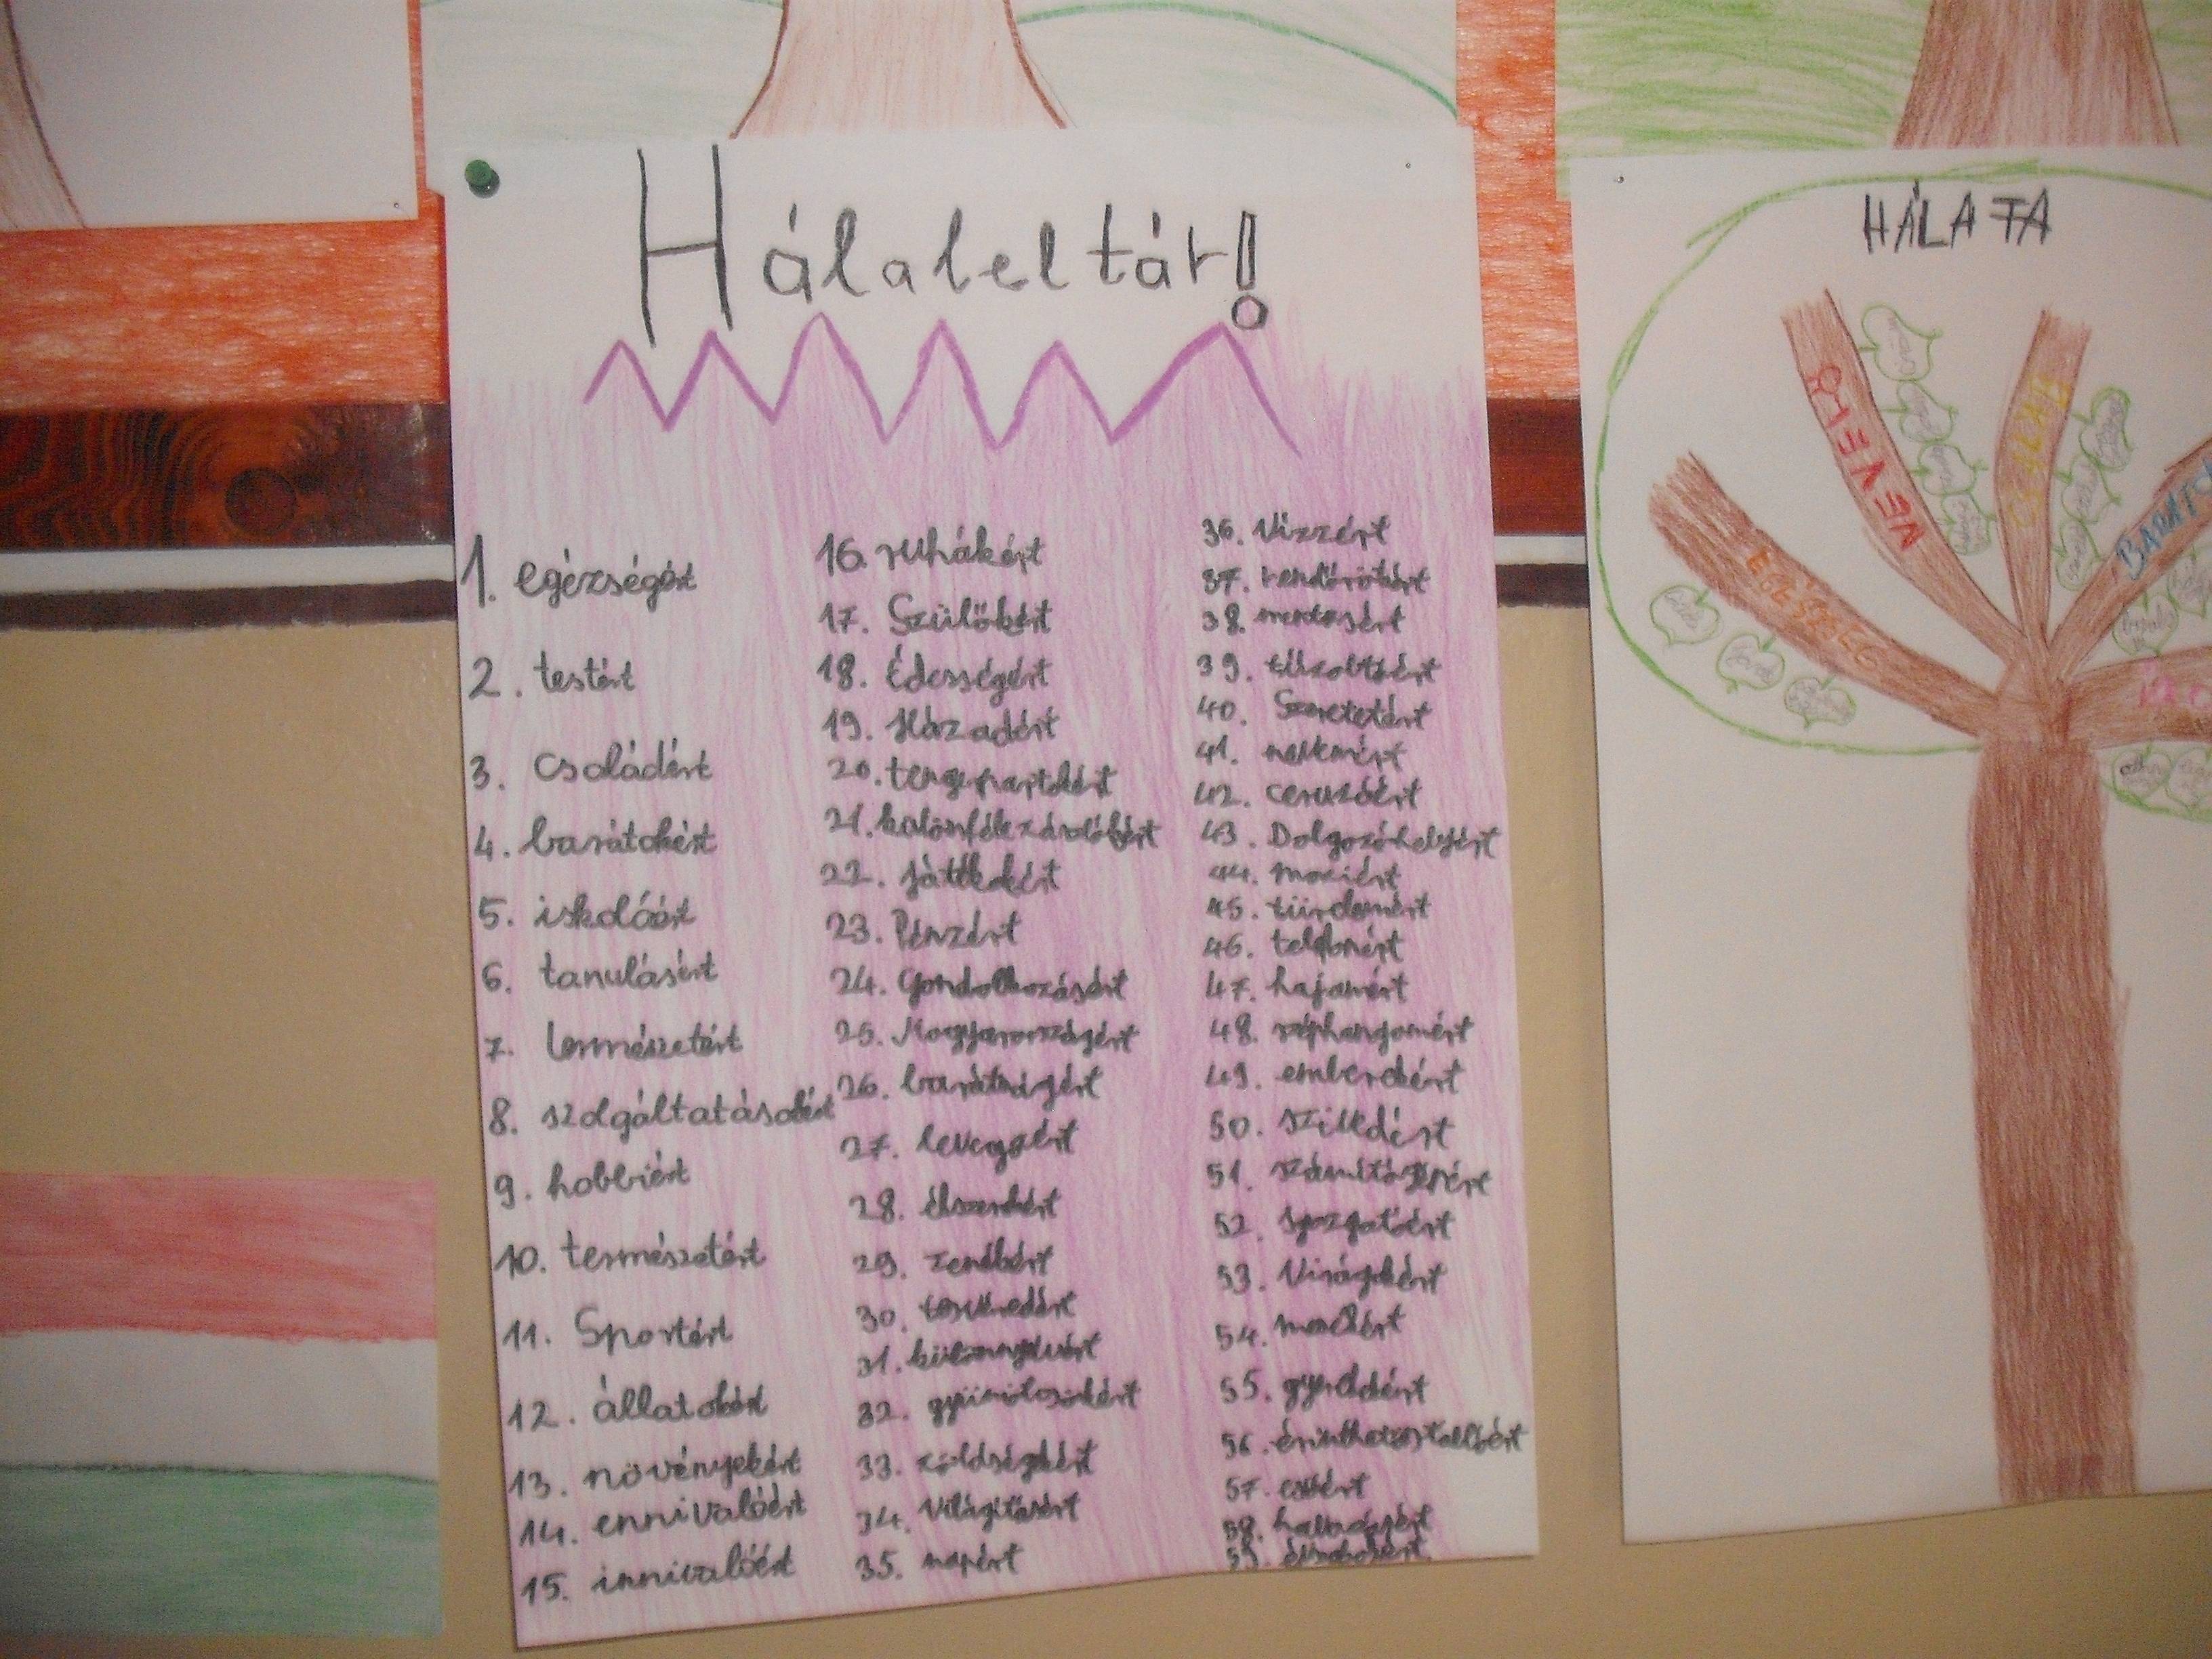 Hálaleltár!
1. egézségért
2. testért
3. családért
4. barátokért
5. iskoláért
6. tanulásért
7. természetért
8. szolgáltatásokért
9. hobbiért
10. természetért
11. Sportért
12. állatokért
13. növényekért
14. ennivalóért
15. innivalóért
16. ruhákért
17. Szülőkért
18. Édességért
19. Házadért
20. tengerpartokért
21.
22. játékokért
23. Pénzért
24. Gondolkozásért
25. Magyarországért
26. barátságért
27. levegőért
28. ékszerekért
29. zenékért
30.
31.
32. gyümölcsökért
33. zöldségekért
34. Világításért
35. napért
36. Vízzért
37. rendőrökért
38. mentősért
39. tűzoltóért
40. Szeretetért
41. nevemért
42. ceruzáért
43. Dolgozóhelyért
44. moziért
45. türelemért
46. telefonért
47. hajamért
48. széphangomért
49. emberekért
50.
51. számítógépért
52. Igazgatóért
53. Virágokért
54.
55.
56.
57. esőért
58.
59.
HÁLA FA
EGÉSZSÉG
NEVELŐ
CSALÁD
BARÁTOK